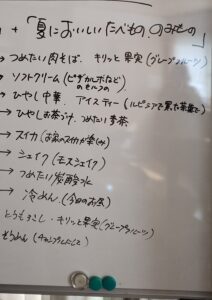 +「夏においしいたべもの?のみもの」
→ つめたい肉そば、キリッと果実(グレープフルーツ)
→ ソフトクリーム(ピザカルボなど)のセルフの
→ ひやし中華、アイスティー(ルピシアで買た茶葉で)
→ ひやしお茶づけ、つめたい麦茶
→ スイカ(お家のスイカが楽しみ)
→ シェイク(モスシェイク)
→ つめたい炭酸水
→ 冷めん、(今日のお昼)
とうもろこし・キリッと果実(グレープフルーツ)
そうめん(チャンプルにして)